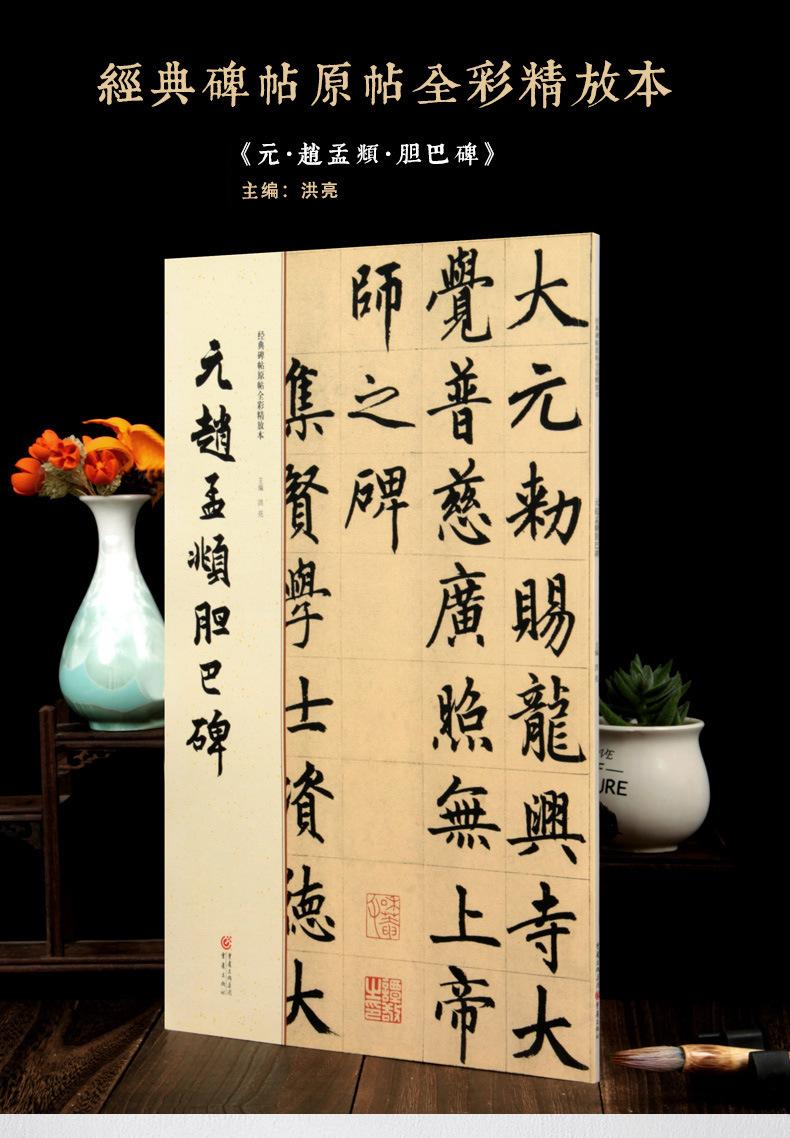 經典碑帖原帖全彩精放本
《元·趙孟頫·胆巴碑》
主编：洪亮
大元勅賜龍興寺大
覺普慈廣照無上帝
師之碑
集賢學士資德大
经典碑帖原帖全彩精放本
主编 洪亮
元趙孟頫胆巴碑
重庆出版集团
重庆出版社